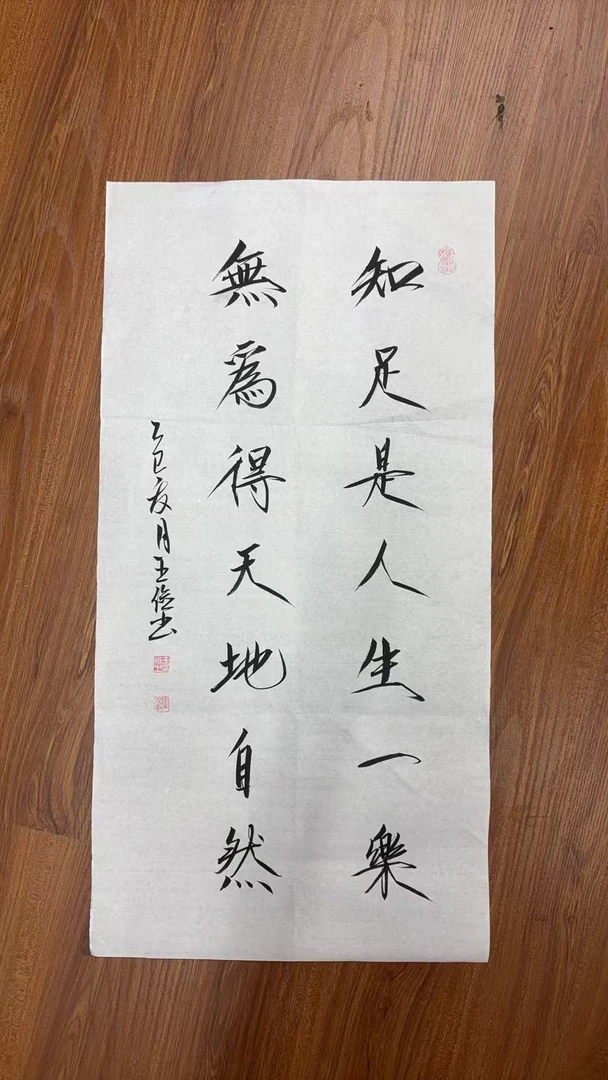 知足是人生一樂
無為得天地自然
乙巳夏月王俊书